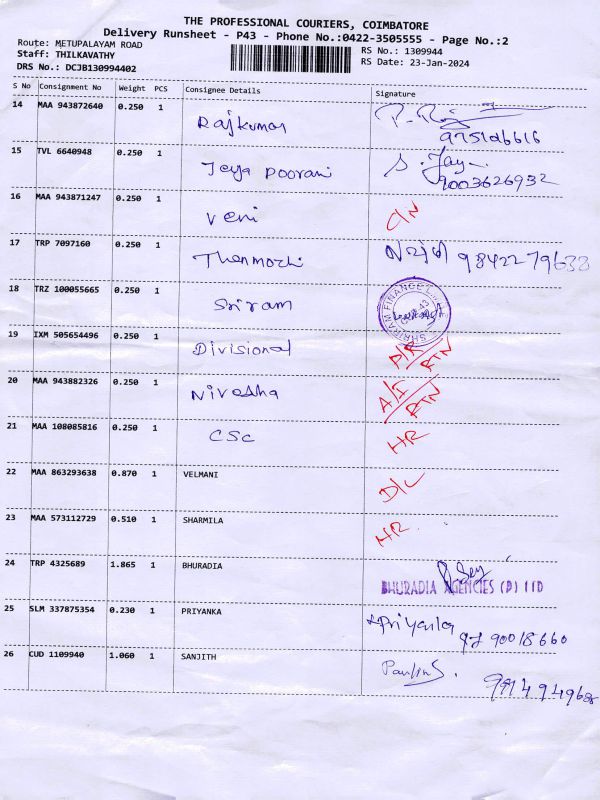 THE PROFESSIONAL COURIERS, COIMBATORE
Delivery Runsheet - P43 - Phone No.:0422-3505555 - Page No.:2
Route: METUPALAYAM ROAD
Staff: THILKAVATHY
DRS No.: DCJB130994402
RS No.: 1309944
RS Date: 23-Jan-2024
S No Consignment No Weight PCS Consignee Details Signature
14 MAA 943872640 0.250 1 Rajkumar
15 TVL 6640948 0.250 1 Jeya poorani 9003626932
16 MAA 943871247 0.250 1 Veni
17 TRP 7097160 0.250 1 Thenmozhi 9842279633
18 TRZ 100055665 0.250 1 Sriram SHRIRAM FINANCE
19 IXM 505654496 0.250 1 Divisional RTN
20 MAA 943882326 0.250 1 Nivedha A/I RTN
21 MAA 108085816 0.250 1 CSC HR
22 MAA 863293638 0.870 1 VELMANI D/L
23 MAA 573112729 0.510 1 SHARMILA HR
24 TRP 4325689 1.865 1 BHURADIA
BHURADIA AGENCIES (P) LTD
25 SLM 337875354 0.230 1 PRIYANKA Priyanka
26 CUD 1109940 1.060 1 SANJITH